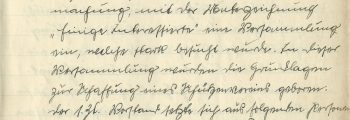 machung, mit der Unterzeichnung
"Einige Interessierte" eine Versammlung
ein, welche stark besucht wurde. In dieser
Versammlung wurden die Grundlagen
zur Schaffung eines Schützenvereins geboren.
Der 1. Zt. Vorstand setzte sich aus folgenden Personen